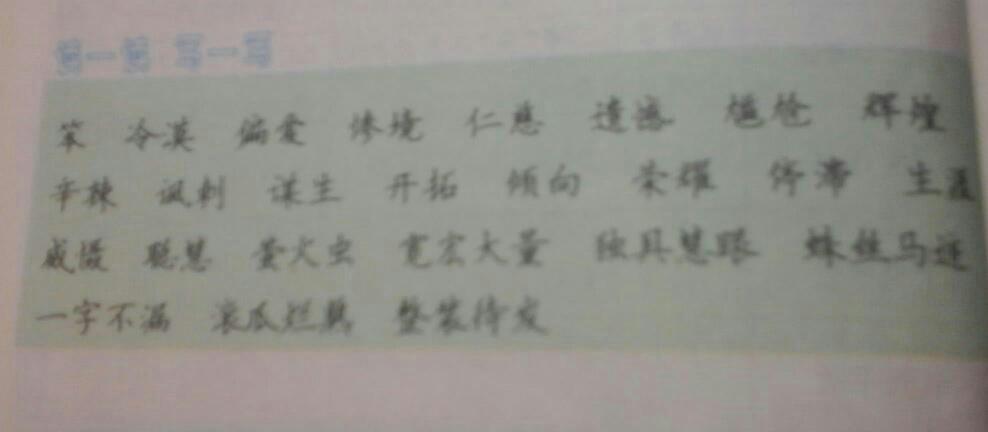 读一读 写一写
笨 冷漠 偏爱 惨境 仁慈 遗憾 尴尬 辉煌
辛辣 讽刺 谋生 开拓 倾向 荣耀 停滞 生涯
威慑 聪慧 萤火虫 宽宏大量 独具慧眼 蛛丝马迹
一字不漏 滚瓜烂熟 整装待发